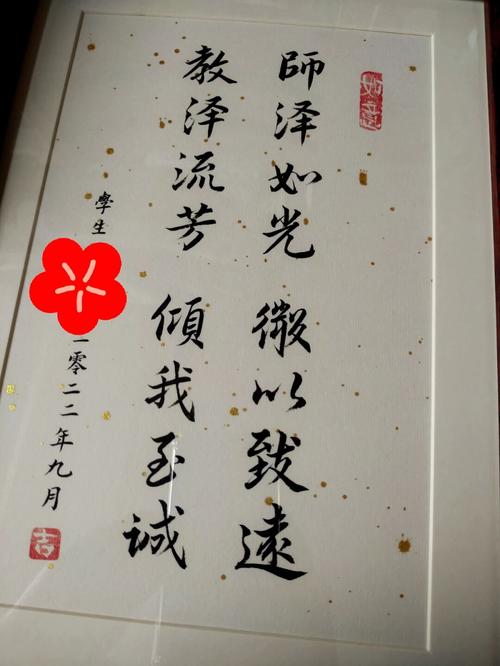 如意
師泽如光 微以致遠
教泽流芳 傾我至诚
學生
零二二年九月
吉